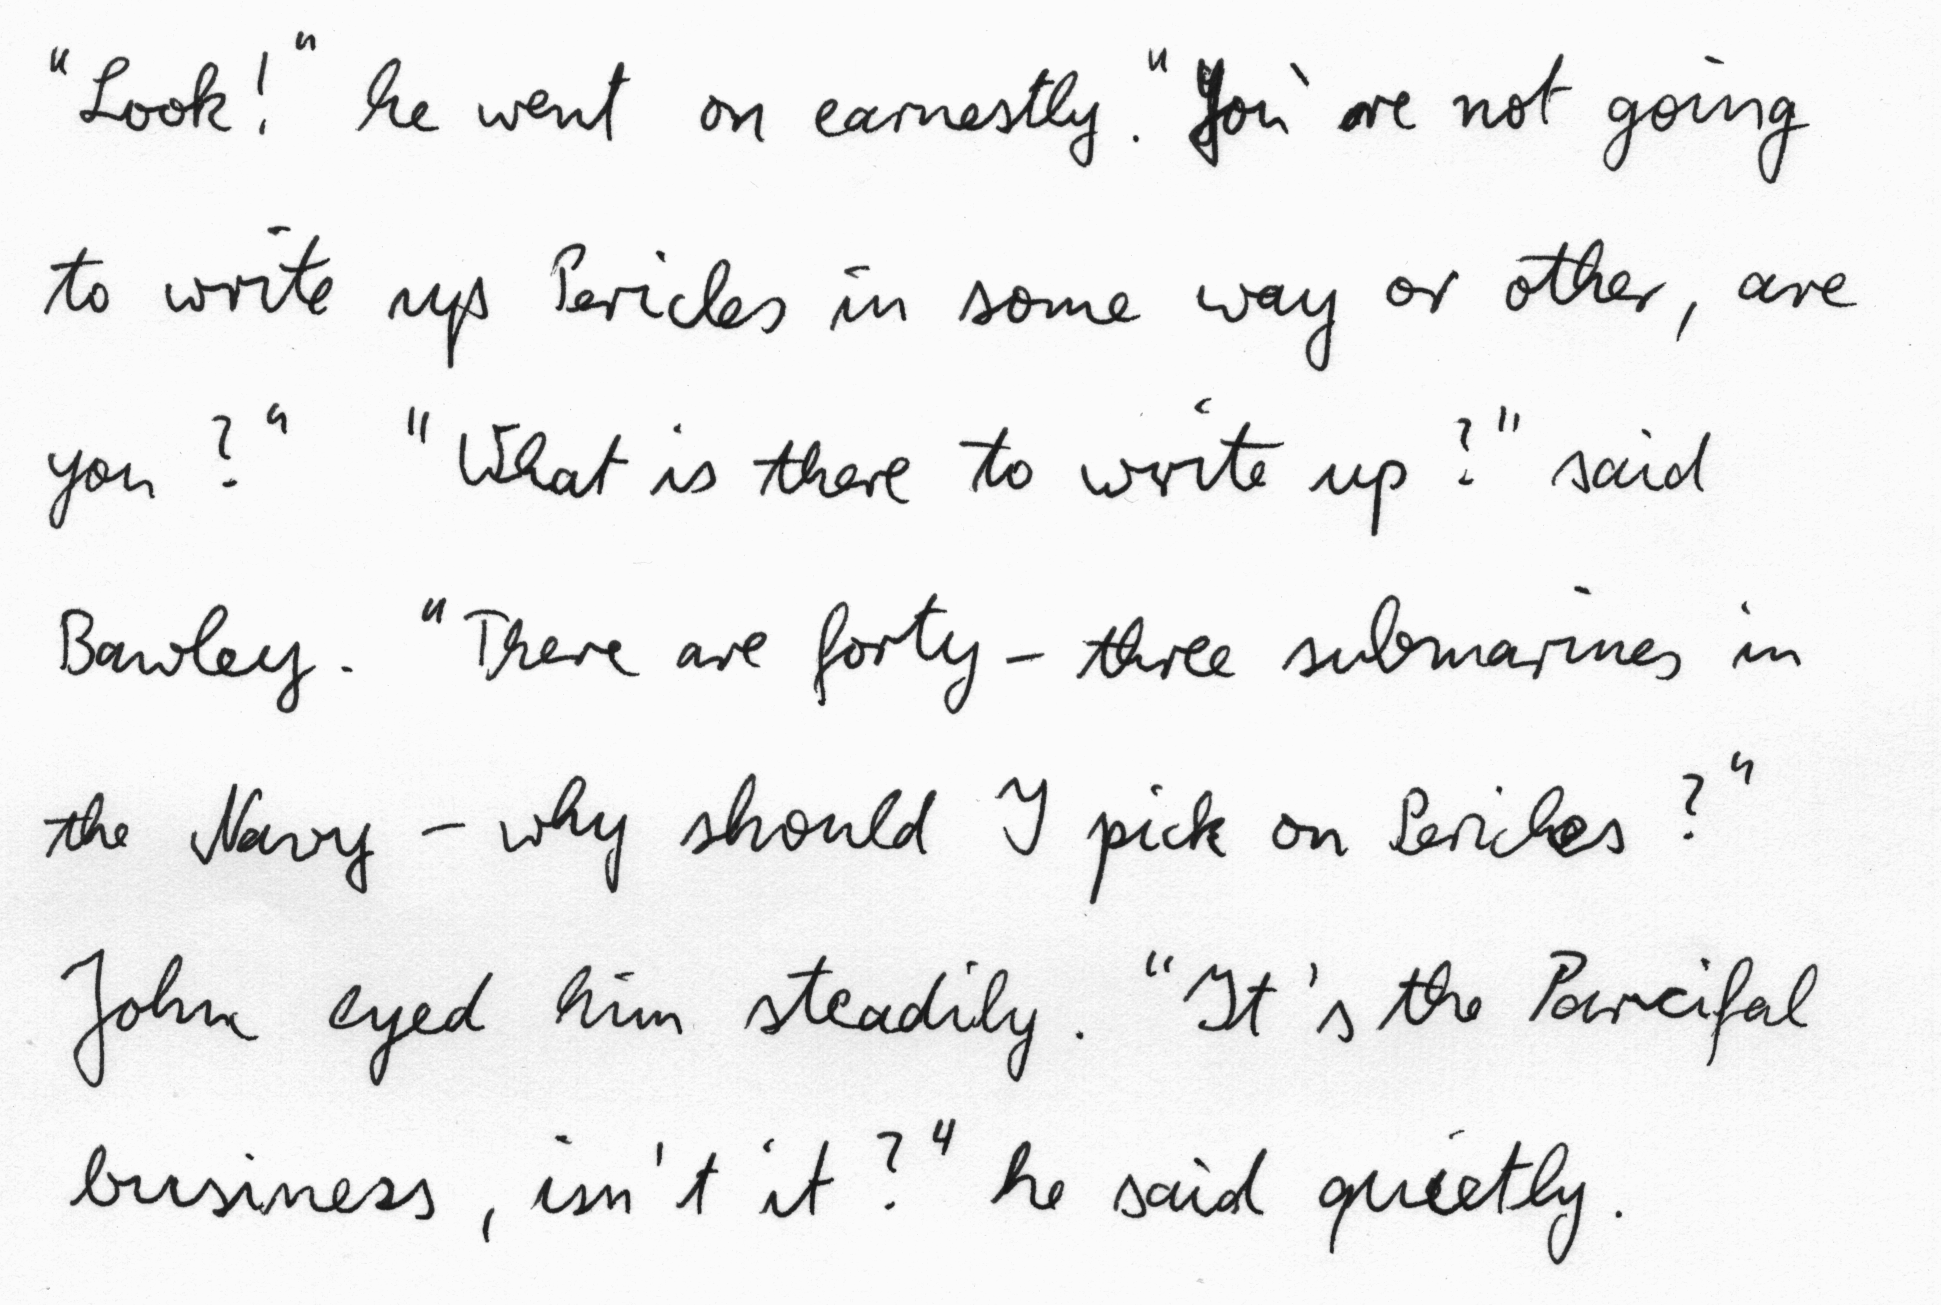 "Look!" he went on earnestly. "You're not going
to write up Pericles in some way or other, are
you?" "What is there to write up?" said
Bawley. "There are forty-three submarines in
the Navy - why should I pick on Pericles?"
John eyed him steadily. "It's the Parcifal
business, isn't it?" he said quietly.